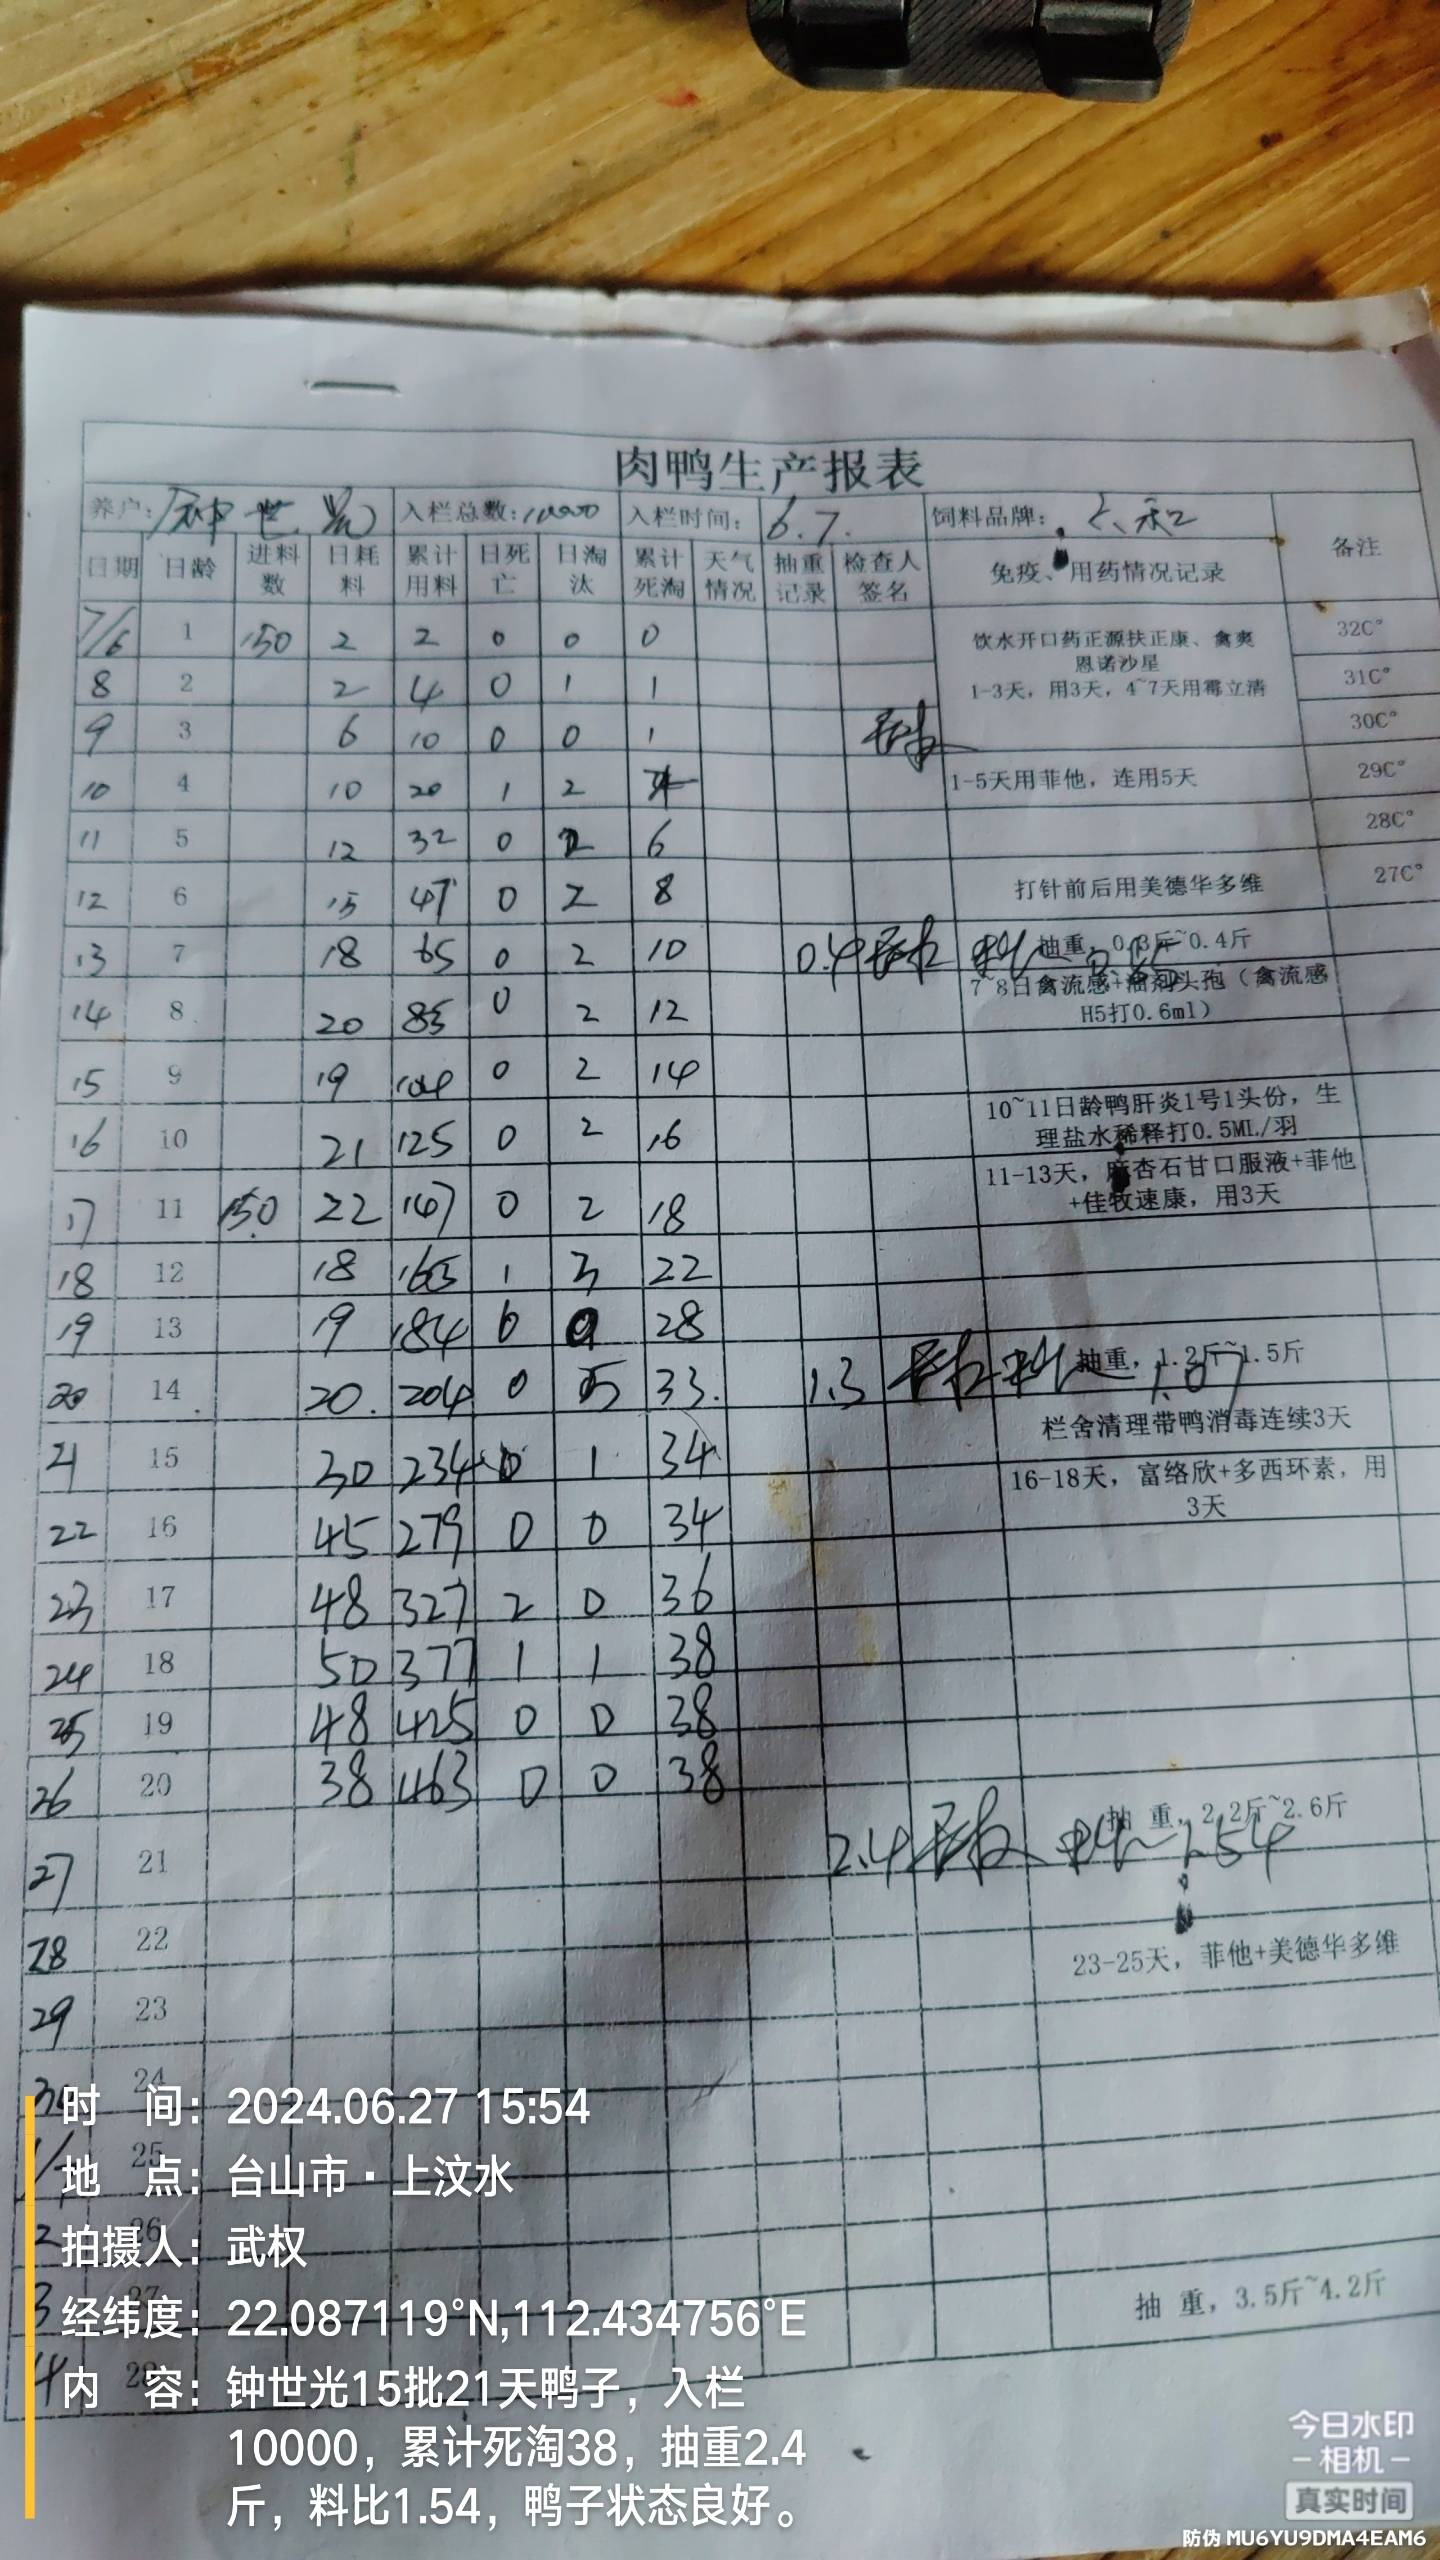 肉鸭生产报表
养户: 钟世光 入栏总数:10000 入栏时间: 6.7. 饲料品牌: 六和 备注
日期 日龄 进料数 日耗料 累计用料 日死亡 日淘汰 累计死淘 天气情况 抽重记录 检查人签名 免疫、用药情况记录
7/6 1 150 2 2 0 0 0 饮水开口药正源扶正康、禽爽 32C°
恩诺沙星
8 2 2 4 0 1 1 1-3天，用3天，4~7天用霉立清 31C°
9 3 6 10 0 0 1 30C°
10 4 10 20 1 2 1-5天用菲他，连用5天 29C°
11 5 12 32 0 2 6 28C°
12 6 15 47 0 2 8 打针前后用美德华多维 27C°
13 7 18 65 0 2 10 0.4 抽重，0.3斤~0.4斤
14 8 20 85 0 2 12 7~8日禽流感+油剂头孢（禽流感
H5打0.6ml）
15 9 19 104 0 2 14
16 10 21 125 0 2 16 10~11日龄鸭肝炎1号1头份，生
理盐水稀释打0.5ML/羽
17 11 150 22 147 0 2 18 11-13天，麻杏石甘口服液+菲他
+佳牧速康，用3天
18 12 18 165 1 3 22
19 13 19 184 6 0 28
20 14 20. 204 0 5 33. 1.3 抽重，1.2斤~1.5斤 料比 1.07
21 15 30 234 0 1 34 栏舍清理带鸭消毒连续3天
22 16 45 279 0 0 34 16-18天，富络欣+多西环素，用
3天
23 17 48 327 2 0 36
24 18 50 377 1 1 38
25 19 48 425 0 0 38
26 20 38 463 0 0 38
27 21 2.4 抽 重，2.2斤~2.6斤 料比 1.54
28 22 23-25天，菲他+美德华多维
29 23
30 24
25
2 26
3 27 抽 重，3.5斤~4.2斤
4 28
时 间：2024.06.27 15:54
地 点：台山市·上汶水
拍摄人：武权
经纬度：22.087119°N,112.434756°E
内 容：钟世光15批21天鸭子，入栏
10000，累计死淘38，抽重2.4
斤，料比1.54，鸭子状态良好。
今日水印
-相机-
真实时间
防伪 MU6YU9DMA4EAM6